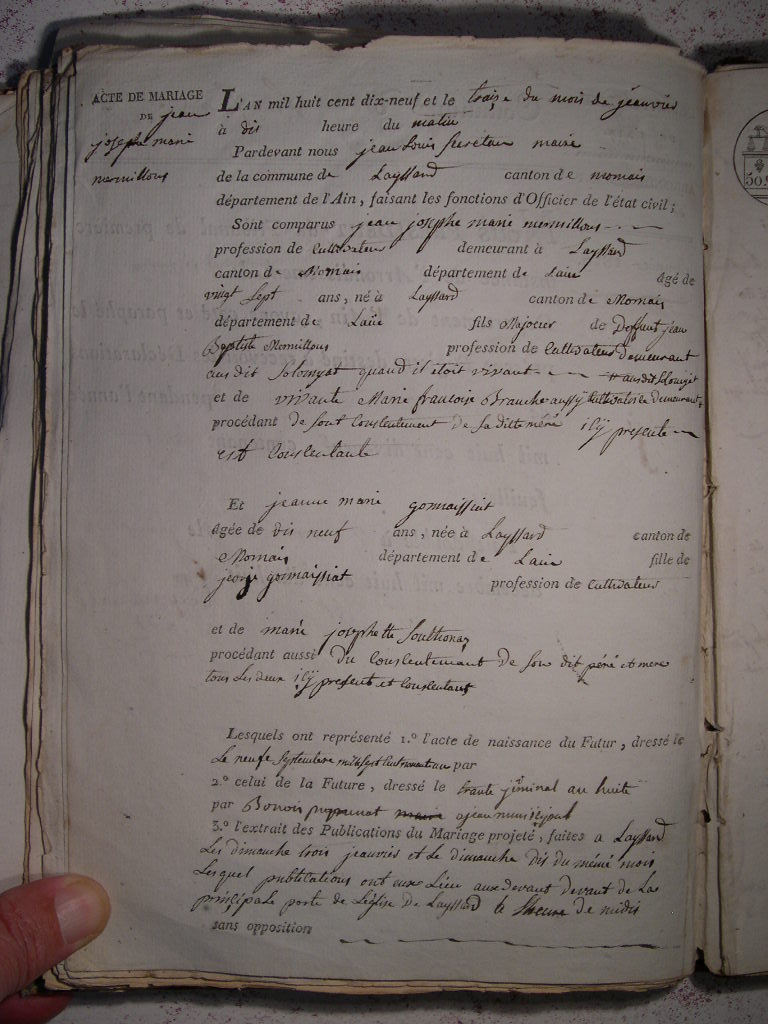 ACTE DE MARIAGE
DE jean
josephe marie
mermillous
L'AN mil huit cent dix-neuf et le traise du mois de jeanvier
à dis heure du matin
Pardevant nous jean Louis maire
de la commune de Layssard canton de mornais
département de l'Ain, faisant les fonctions d'Officier de l'état civil ;
Sont comparus jean josephe marie mermillous
profession de Cultivateur demeurant à Layssard
canton de Mornais département de Lain âgé de
vingt sept ans, né à Layssard canton de Mornais
département de Lain fils Majeur de Deffunt jean
Baptiste Mermillous profession de Cultivateur demeurant
au dit Solomyat quand il etoit vivant
et de vivante Marie francoise Branche aussy Cultivatrice demeurant
procédant de sont Conslentement de sa ditte méré icy presente
est Conslentante
Et jeanne marie gonnaissiat
âgée de dis neuf ans, née à Layssard canton de
Mornais département de Lain fille de
gonnaissiat profession de Cultivateur
et de marie josephette
procédant aussi du Conslentemant de son dit péré et mere
tous Les deux icy present et Conslentant
Lesquels ont représenté 1.º l'acte de naissance du Futur, dressé le
Le neufe Septembre mil sept Cent par
2.º celui de la Future, dressé le trante jerminal an huite
par Benoit ajean munisipal
3.º l'extrait des Publications du Mariage projeté, faites a Layssard
Les dimanche trois jeanvier et Le dimanche dis du méme mois
Lesquel publications ont eux Lieu aux devant devant de La
prinsipale porte de Léglise de Layssard heure de midis
sans opposition
50.